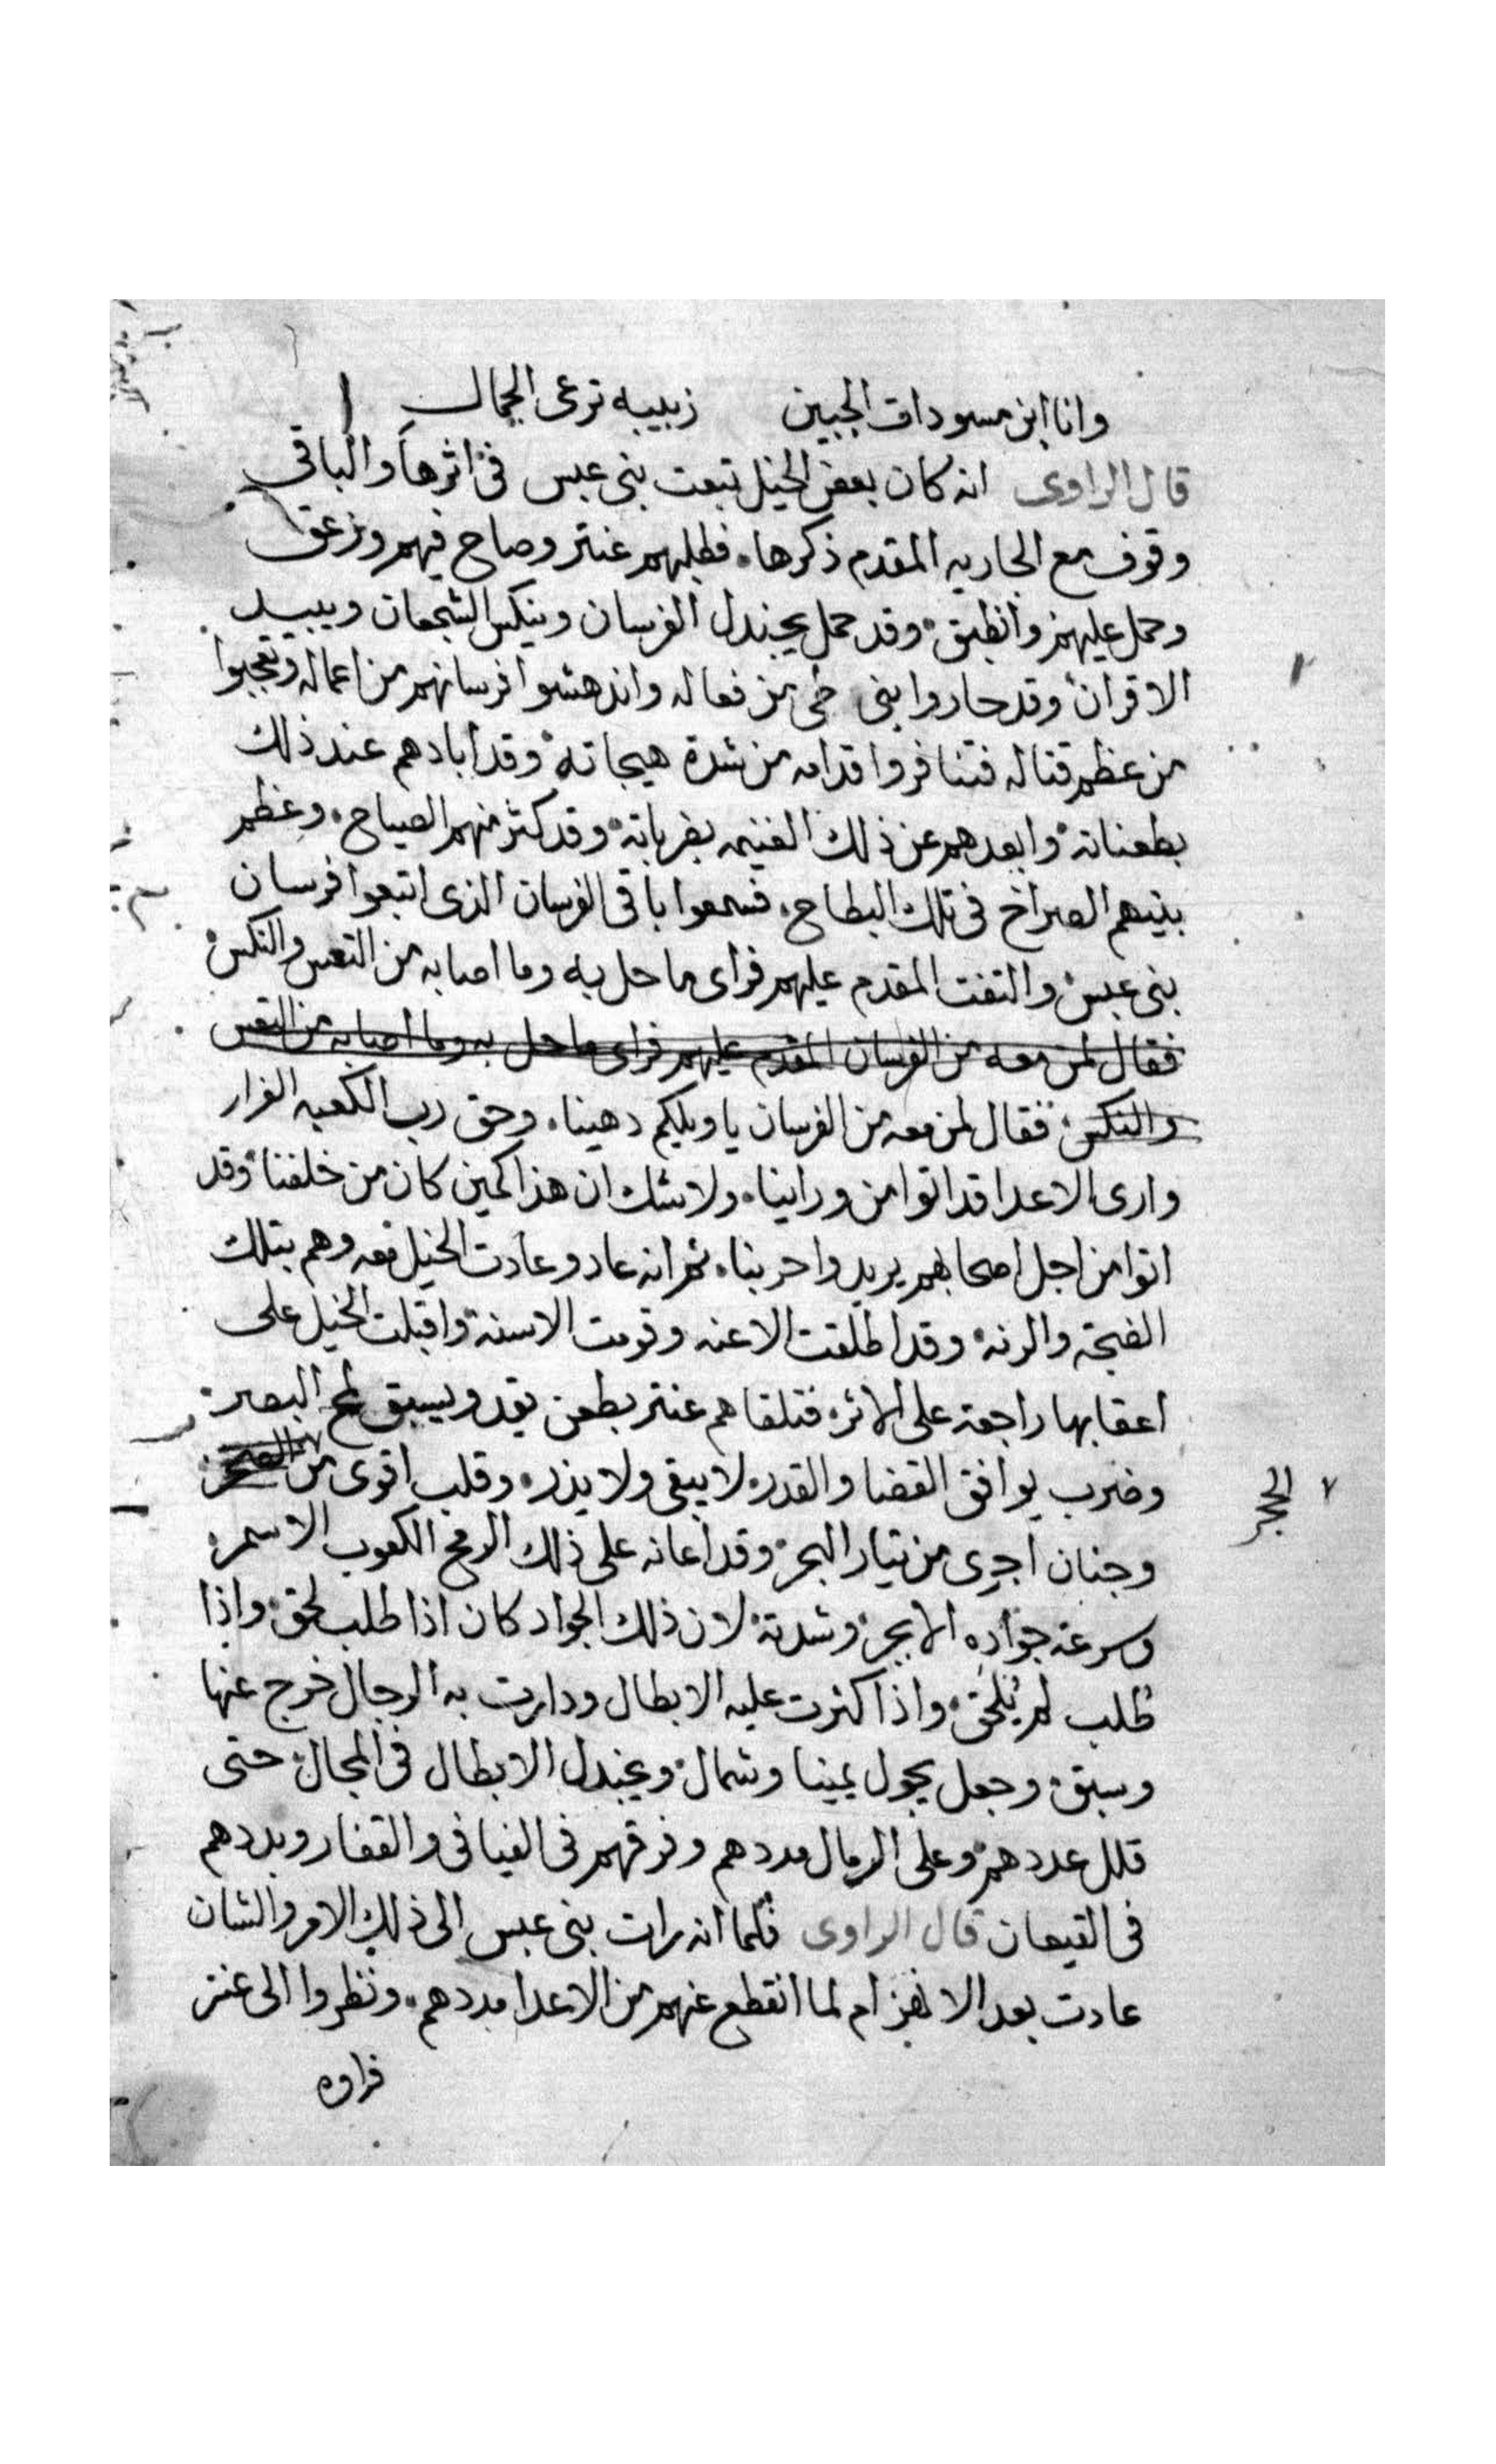 وانا ابن مسودات الجبين زبيبه ترعى الجمال
قال الراوى انه كان بعض الخيل تبعت بنى عبس فى اثرها والباقى
وقوف مع الجاريه المقدم ذكرها. فطلبهم عنتر وصاح فيهم وزعق
وحمل عليهم وانطبق. وقد حمل يجندل الفرسان وينكس الشجعان ويبيد
الاقران وقد حاروا بنى من فعاله واندهشوا فرسانهم من اعماله وتعجبوا
من عظم قتاله فتنافروا قدامه من شدة هيجاته وقد أبادهم عند ذلك
بطعناته وابعدهم عن ذلك الغنيمه بضرباته وقد كثر منهم الصياح. وعظم
بينهم الصراخ فى تلك البطاح. فسمعوا باقى الفرسان الذى اتبعوا فرسان
بنى عبس والتفت المقدم عليهم فراى ما حل به وما اصابه من التعس والنكس
فقال لمن معه من الفرسان المقدم عليهم فراى ما حل به وما اصابه من التعس
والنكس فقال لمن معه من الفرسان يا ويلكم دهينا. وحق رب الكعبه الغرار
وارى الاعدا قد اتوا من وراينا. ولا شك ان هذا كمين كان من خلفنا وقد
اتوا من اجل اصحابهم يريدوا حربنا. ثم انه عاد وعادت الخيل معه وهم بتلك
الضجه والرنه وقد اطلقت الاعنه وقومت الاسنة واقبلت الخيل على
اعقابها راجعة على الاثر. فتلقاهم عنتر بطعن يقد ويسبق لمح البصر.
وضرب يوافق القضا والقدر. لا يبقى ولا يذر. وقلب اقوى من
الحجر
وجنان أجرى من تيار البحر وقد أعانه على ذلك الرمح الكعوب الاسمر
وسرعة جواده الابجر وشدته لان ذلك الجواد كان اذا طلب لحق. واذا
طلب لم يُلحَق. واذا كثرت عليه الابطال ودارت به الرجال خرج عنها
وسبق. وجعل يجول يمينا وشمال ويجندل الابطال فى المجال حتى
قلل عددهم وعلى الرمال مددهم وفرقهم فى الفيافى والقفار وبددهم
فى القيعان قال الراوى فلما انه رات بنى عبس الى ذلك الامر والشان
عادت بعد الانهزام لما انقطع عنهم من الاعدا مددهم. ونظروا الى عنتر
فراوه